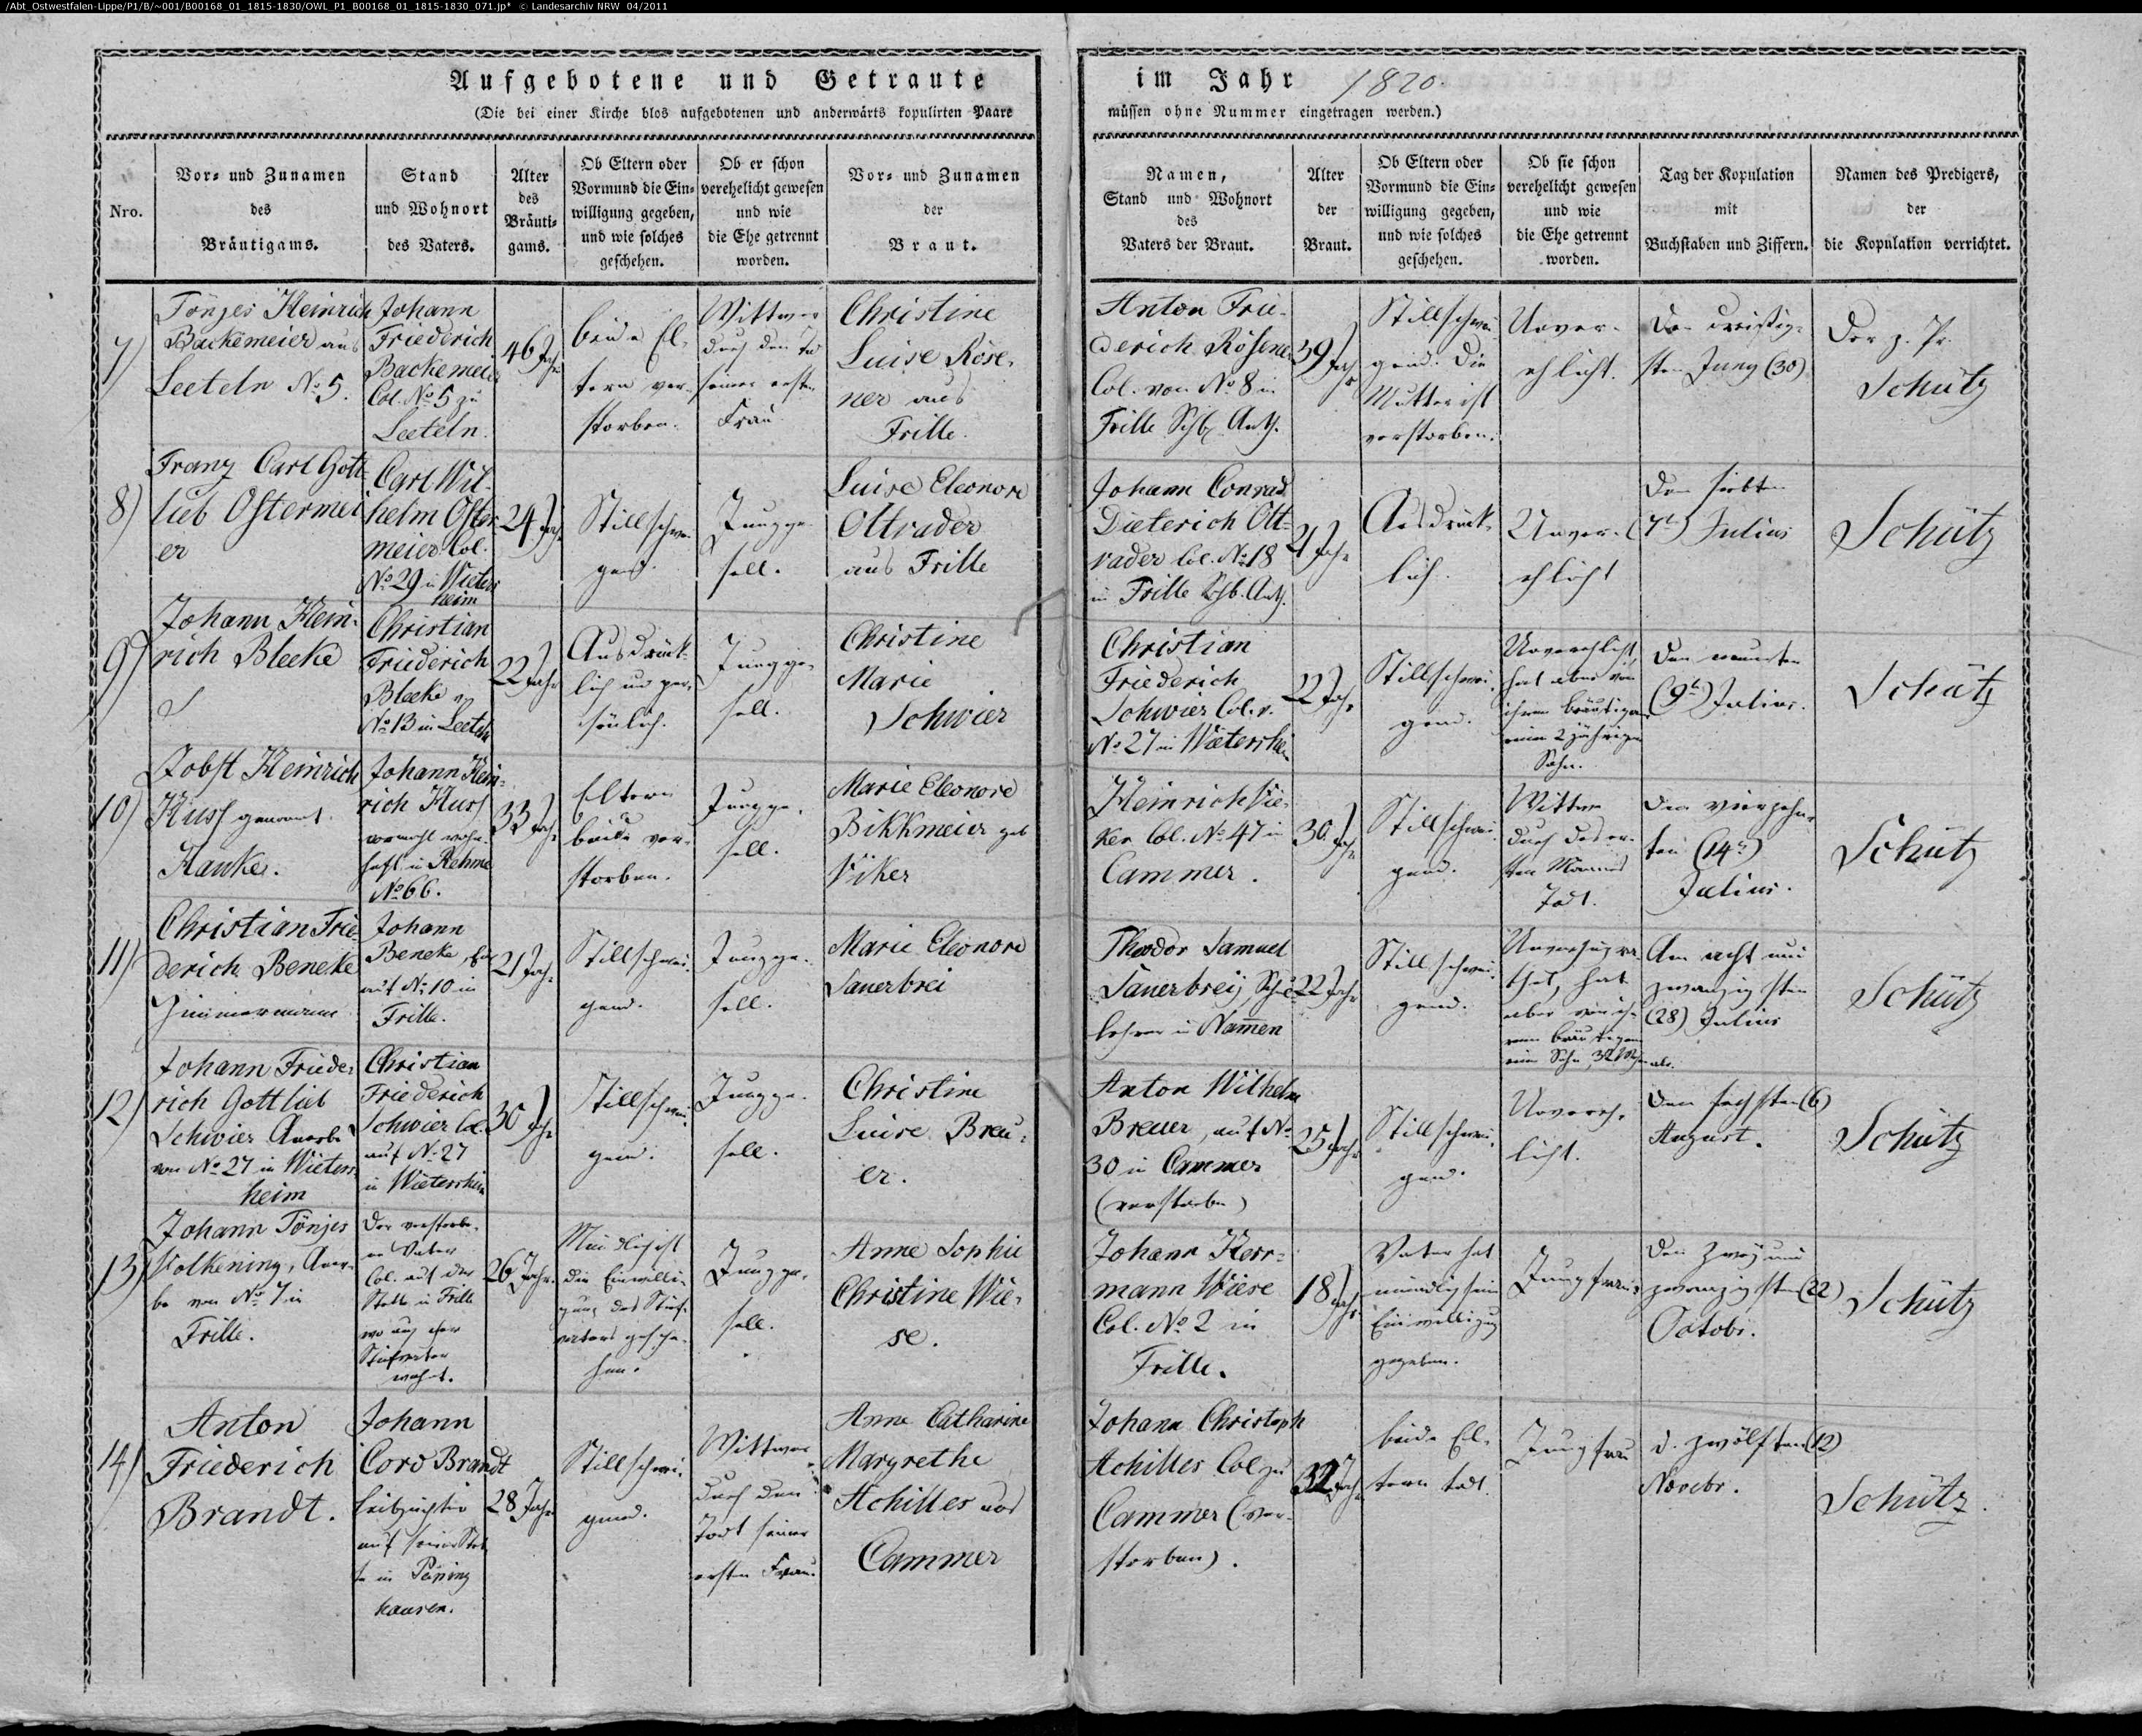 /Abt_Ostwestfalen-Lippe/P1/B/~001/B00168_01_1815-1830/OWL_P1_B00168_01_1815-1830_071.jp* © Landesarchiv NRW 04/2011
Aufgebotene und Getraute
(Die bei einer Kirche blos aufgebotenen und anderwärts kopulirten Paare
im Jahr 1820.
müssen ohne Nummer eingetragen werden.)
Nro.
Vor- und Zunamen
des
Bräutigams.
Stand
und Wohnort
des Vaters.
Alter
des
Bräuti-
gams.
Ob Eltern oder
Vormund die Ein-
willigung gegeben,
und wie solches
geschehen.
Ob er schon
verehelicht gewesen
und wie
die Ehe getrennt
worden.
Vor- und Zunamen
der
Braut.
Namen,
Stand und Wohnort
des
Vaters der Braut.
Alter
der
Braut.
Ob Eltern oder
Vormund die Ein-
willigung gegeben,
und wie solches
geschehen.
Ob sie schon
verehelicht gewesen
und wie
die Ehe getrennt
worden.
Tag der Kopulation
mit
Buchstaben und Ziffern.
Namen des Predigers,
der
die Kopulation verrichtet.
7)
Tönjes Heinrich
Backemeier aus
Leeteln No 5.
Johann
Friederich
Backemeier
Col. No 5 zu
Leeteln.
46 Jahr
beide El-
tern ver-
storben.
Wittwer
durch den Tod
seiner ersten
Frau
Christine
Luise Röse-
ner aus
Frille.
Anton Frie-
derich Rösener
Col. von No 8 in
Frille Schb. Anth.
39 Jahr
Stillschwei-
gend. Die
Mutter ist
verstorben.
Unver-
ehlicht.
Den dreißig-
sten Juny (30)
Der z. Pr.
Schütz
8)
Franz Carl Gott-
lieb Ostermei-
er
Carl Wil-
helm Oster-
meier Col.
No 29 in Wieters
heim
24 Jahr
Stillschwei-
gend.
Jungge-
sell.
Luise Eleonore
Ottrader
aus Frille
Johann Conrad
Dieterich Ott-
rader Col. No 18
in Frille Schb. Anth.
21 Jahr
Ausdrück-
lich.
Unver-
ehlicht
Den siebten
(7t) Julius
Schütz
9)
Johann Hein-
rich Bleeke
Christian
Friederich
Bleeke
No 13 in Leeteln
22 Jahr
Ausdrück-
lich und per-
sönlich.
Jungge-
sell.
Christine
Marie
Schwier
Christian
Friederich
Schwier Col. v.
No 27 in Wietersheim
22 Jahr
Stillschwei-
gend.
Unverehlicht
hat aber von
ihrem Bräutigam
einen 2 jährigen
Sohn.
Den neunten
(9t) Julius.
Schütz
10)
Jobst Heinrich
Huss genannt
Hanke.
Johann Hein-
rich Huss
vormahl wohn-
haft in Rehme
No 66.
33 Jahr
Eltern
beide ver-
storben.
Jungge-
sell.
Marie Eleonore
Bikkmeier geb
Viker
Heinrich Vie-
ker Col. No 47 in
Cammer.
30 Jahr
Stillschwei-
gend.
Wittwe
durch des er-
sten Mannes
Tod.
Den vierzehn-
ten (14t)
Julius.
Schütz
11)
Christian Frie-
derich Beneke
Zimmermann
Johann
Beneke,
auf No 10 in
Frille.
21 Jahr
Stillschwei-
gend.
Jungge-
sell.
Marie Eleonore
Sauerbrei
Theodor Samuel
Sauerbreij Schul-
lehrer in Nam̄en
22 Jahr
Stillschwei-
gend.
hat
aber von ih-
rem Bräutigam
einen Sohn
Am acht und
zwanzigsten
(28) Julius
Schütz
12)
Johann Friede-
rich Gottlieb
Schwier Anerbe
von No 27 in Wieters-
heim
Christian
Friederich
Schwier Col.
auf No 27
in Wietersheim
30 Jahr
Stillschwei-
gend.
Jungge-
sell.
Christine
Luise Breu-
er.
Anton Wilhelm
Breuer, auf No
30 in Cammer
(verstorben)
25 Jahr
Stillschwei-
gend.
Unvereh-
licht.
Den sechsten (6)
August.
Schütz
13)
Johann Tönjes
Volkening, Aner-
be von No 7 in
Frille.
Der verstorbe-
ne Vater
Col. auf der
Stette in Frille
wo auch der
Stiefvater
wohnt.
26 Jahr.
Mündlich ist
die Einwilli-
gung des Stief-
vaters gesche-
hen.
Jungge-
sell.
Anne Sophie
Christine Wie-
se.
Johann Herr-
mann Wiese
Col. No 2 in
Frille.
18 Jahr
Vater hat
mündlich seine
Einwilligung
gegeben.
Jungfrau
Den zwey und
zwanzigsten (22)
Octobr.
Schütz
14)
Anton
Friederich
Brandt.
Johann
Cord Brandt
Leibzüchter
auf seiner Stet-
te in Päping
hausen.
28 Jahr
Stillschwei-
gend.
Wittwer
durch den
Todt seiner
ersten Frau.
Anne Catharine
Margrethe
Achilles aus
Cammer
Johann Christoph
Achilles Col. zu
Cammer (ver-
storben).
32 Jahr
beide El-
tern todt.
Jungfrau
d. zwölften (12)
Novebr.
Schütz.